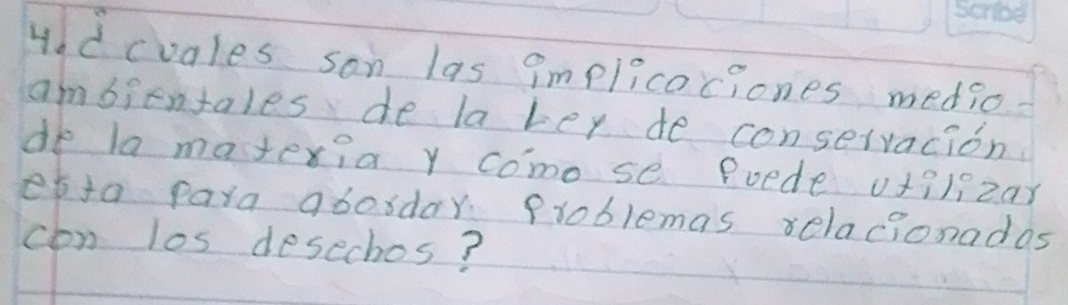 Scribe
4.¿ cuales son las implicaciones medio-
ambientales de la Ley de conservación
de la materia y como se puede utilizar
esta para abordar problemas relacionados
con los desechos?